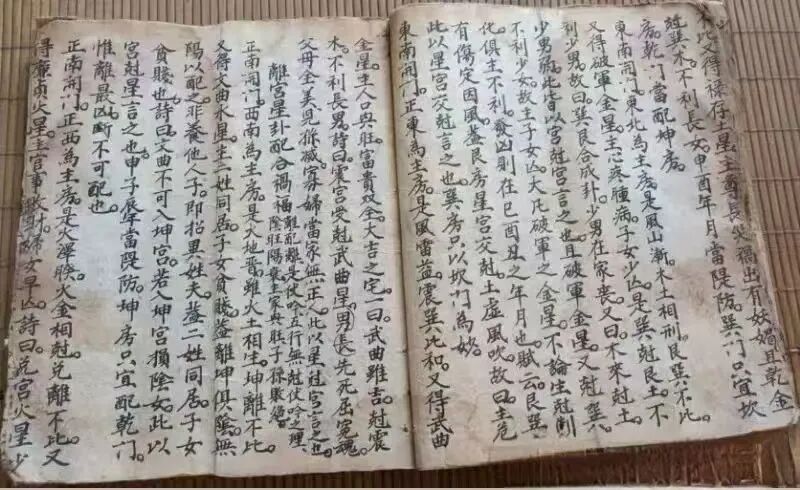 不比又得祿存土星主尊長災禍出有妖媚且乾金
尅巽木。不利長女申酉年月當隄防。巽門只宜坎
房。乾門當配坤房。
東南開門東北為主房是風山漸。木土相刑艮巽不比
又得破軍金星主心疼腫病。子女少亡。是巽尅艮土不
利少男。故曰巽艮合成卦少男在家喪。又曰木來尅土
少男病。此皆以宮尅宮言之也且破軍金星又尅巽木
不利少女。故主子女凶大凡破軍之金星。不論生尅制
化俱主不利。發凶則在巳酉丑之年月也。賦云艮巽
有傷定因風。蓋艮房星宮交尅。土虛風吹。故曰主危
此以星宮交尅言之也。巽房只以坎門為妙
東南開門。正東為主房。是風雷益。震巽比和。又得武曲
金星主人口興旺富貴双全。大吉之宅一曰武曲雖吉尅震
木。不利長男。詩曰震宮受尅武曲星。男長先死屈冤魂
父母全美兒孫減。寡婦當家無正人。此以星尅宮言之也
離宮星卦配合禍福 離配離是伏吟五行無尅伏吟之理。陰旺陽衰主家興旺子孫敗絕
正南開門。西南為主房。是火地晉。雖火土相生。坤離不比。
又得文曲水星主二姓同居。子女貧賤。蓋離坤俱陰無
陽以配之。非養他人子。即招異姓夫。蓋二姓同居子女
貧賤也。詩曰文曲不可入坤宮。若入坤宮損陰女。此以
宮尅星言之也。申子辰年當隄防。坤房只宜配乾門
惟離最凶。斷不可配也。
正南開門。正西為主房。是火澤睽。火金相尅。兌離不比。又
得廉貞火星。主官事敗財。婦女早亡。詩曰兌宮火星少